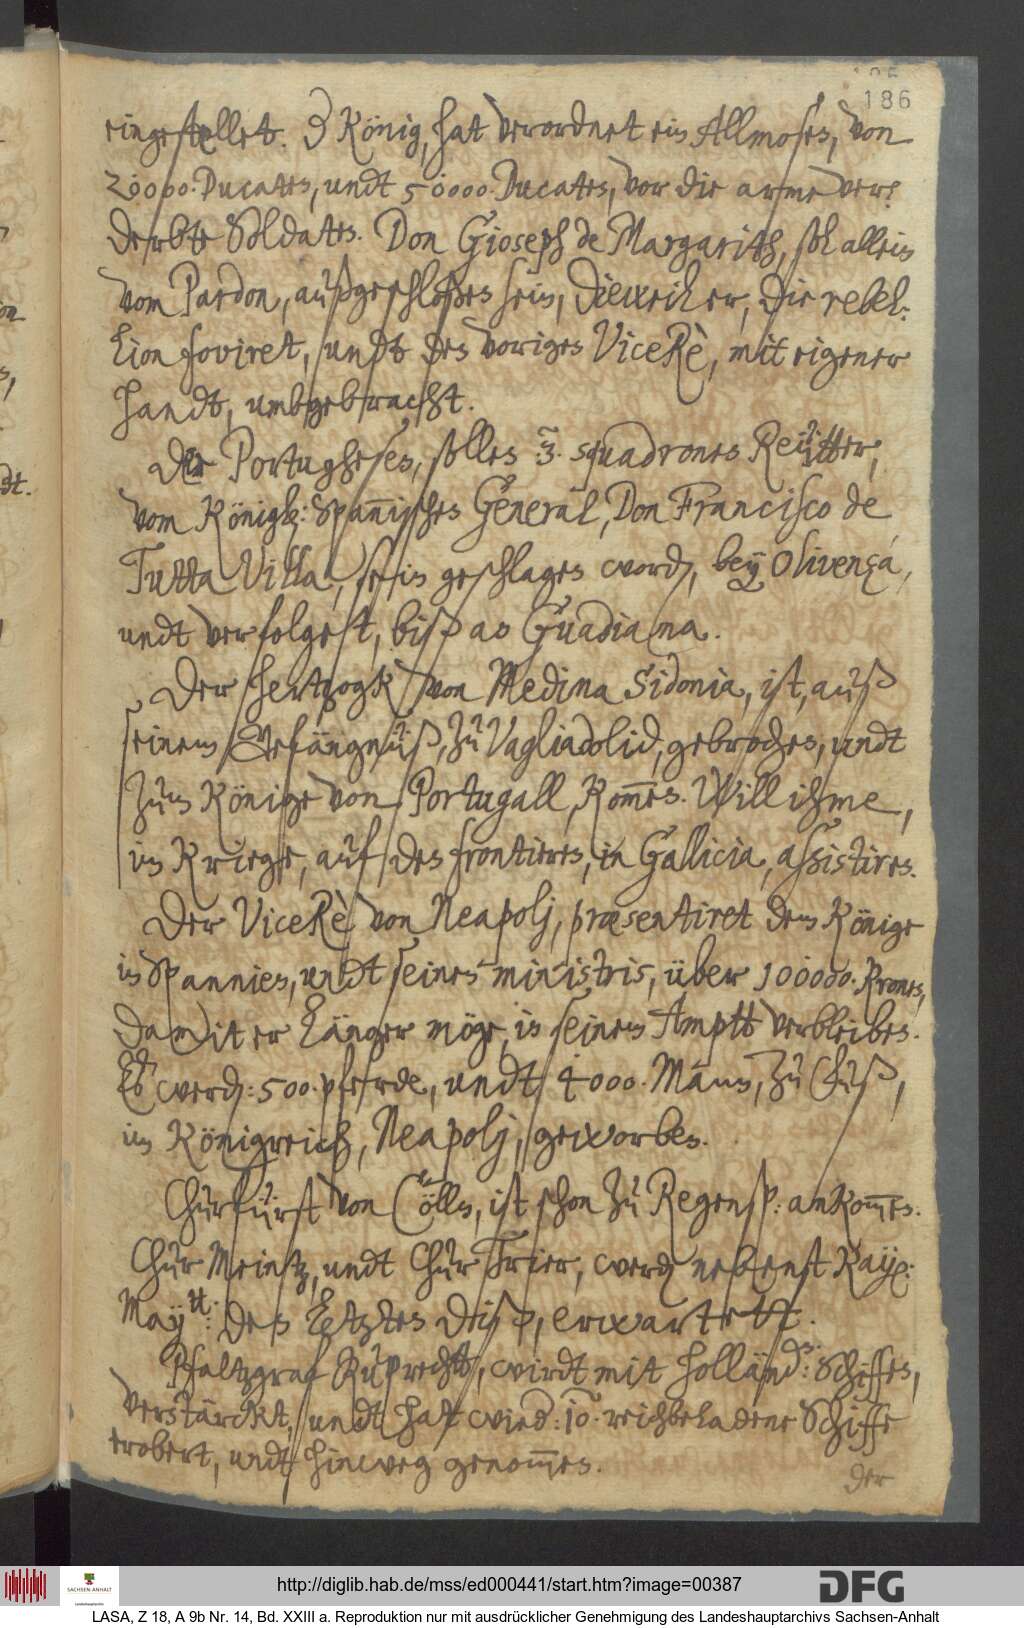 186
eingestellet. Der König, hat verordnet ein Allmosen, von
20000. Ducaten, undt 50000. Ducaten, vor die arme ver-
derbte Soldaten. Don Gioseph de Margarith, soll allein
vom Pardon, außgeschloßen sein, dieweil er, die rebel-
lion foviret, undt den vorigen ViceRè, mit eigener
handt, umbgebracht.
Der Portughesen, sollen 3. squadronen Reütter,
vom Königl: Spannischen General, Don Francisco de
Tutta Villa, sein geschlagen word, bey Olivença,
undt verfolget, biß an Guadiana.
Der Hertzogk von Medina Sidonia, ist, auß
seinem Gefängnüß, zu Vagliadolid, gebrochen, undt
zum Könige von Portugall, kommen. Will ihme,
im Kriege, auf den frontieren, in Gallicia, assistiren.
Der ViceRè von Neapolj, præsentiret dem Könige
in Spannien, undt seinen ministris, über 100000. Kronen,
damit er länger möge, in seinem Amptt verbleiben.
Es werd: 500. pferde, undt 4000. Mann, zu Fuß,
im Königreich, Neapolj, geworben.
Churfürst von Cölln, ist schon zu Regensp: ankommen.
Chur Meintz, undt Chur Trier, werd nebenst Kay:
May:tt deß letzten diß, erwartett.
Pfaltzgraf Ruprecht, wirdt mit Holländ: Schiffen,
verstärckt, undt hat wied: 10. reichbeladene Schiffe
erobert, undt hinweg genommen.
der
http://diglib.hab.de/mss/ed000441/start.htm?image=00387
DFG
SACHSEN-ANHALT
LASA, Z 18, A 9b Nr. 14, Bd. XXIII a. Reproduktion nur mit ausdrücklicher Genehmigung des Landeshauptarchivs Sachsen-Anhalt